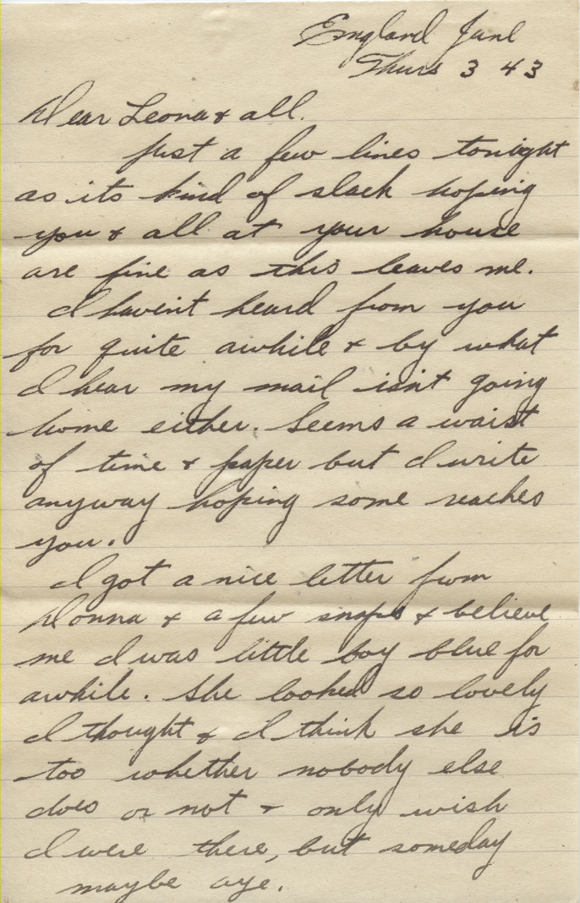 England June
Thurs 3 43
Dear Leona & all.
Just a few lines tonight
as its kind of slack hoping
you & all at your house
are fine as this leaves me.
I havent heard from you
for quite awhile & by what
I hear my mail isn't going
home either. Seems a waist
of time & paper but I write
anyway hoping some reaches
you.
I got a nice letter from
Donna & a few snaps & believe
me I was little boy blue for
awhile. She looked so lovely
I thought & I think she is
too whether nobody else
does or not & only wish
I were there, but someday
maybe aye.